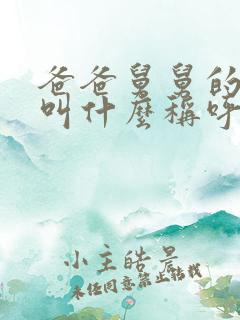 爸爸舅舅的
叫什麼稱呼
小主皓景
未经同意禁止转载